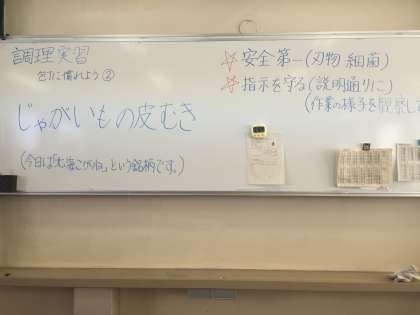 調理実習
包丁に慣れよう②
じゃがいもの皮むき
(今日は「北海こがね」という銘柄です。)
☆安全第一(刃物 細菌)
☆指示を守る(説明通りに)
(作業の様子を観察して